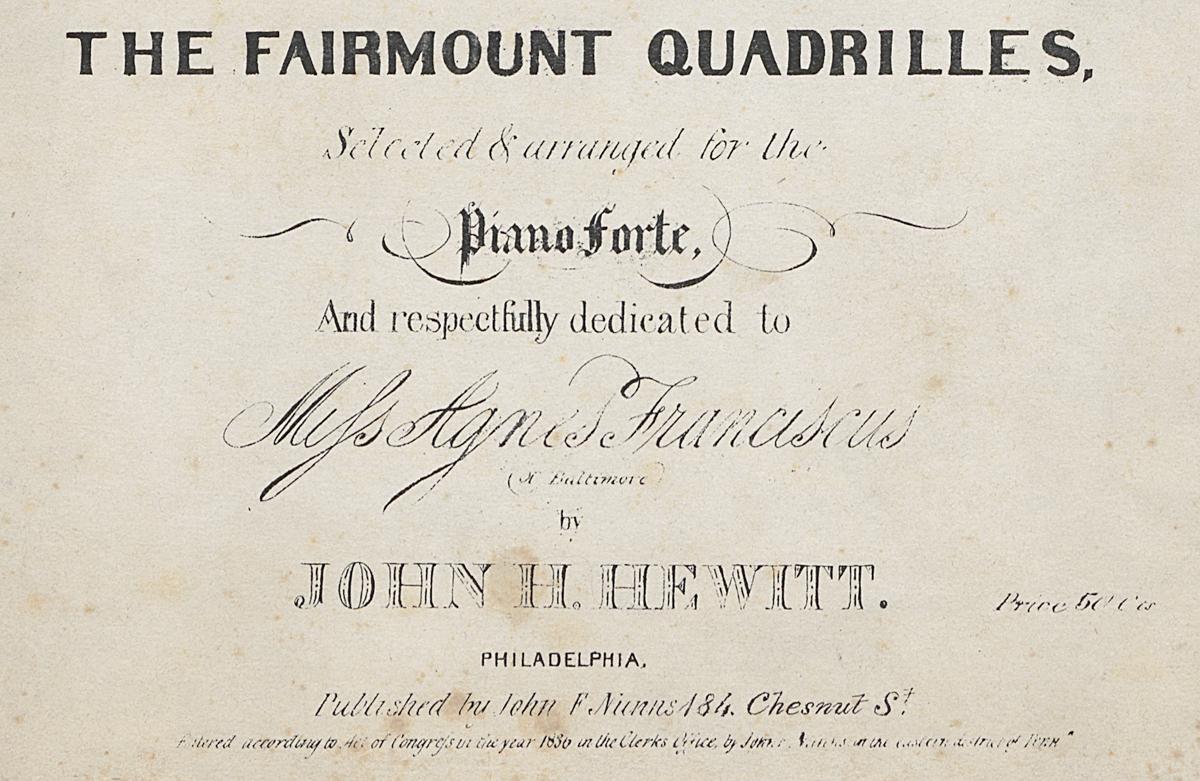 THE FAIRMOUNT QUADRILLES,
Selected & arranged for the
Piano Forte,
And respectfully dedicated to
Miss Agnes Franciscus
(of Baltimore)
by
JOHN H. HEWITT.
Price 50 Cts
PHILADELPHIA,
Published by John F Nunns 184 Chesnut St.
Entered according to Act of Congress in the year 1836 in the Clerks Office, by John F. Nunns in the eastern district of Penna